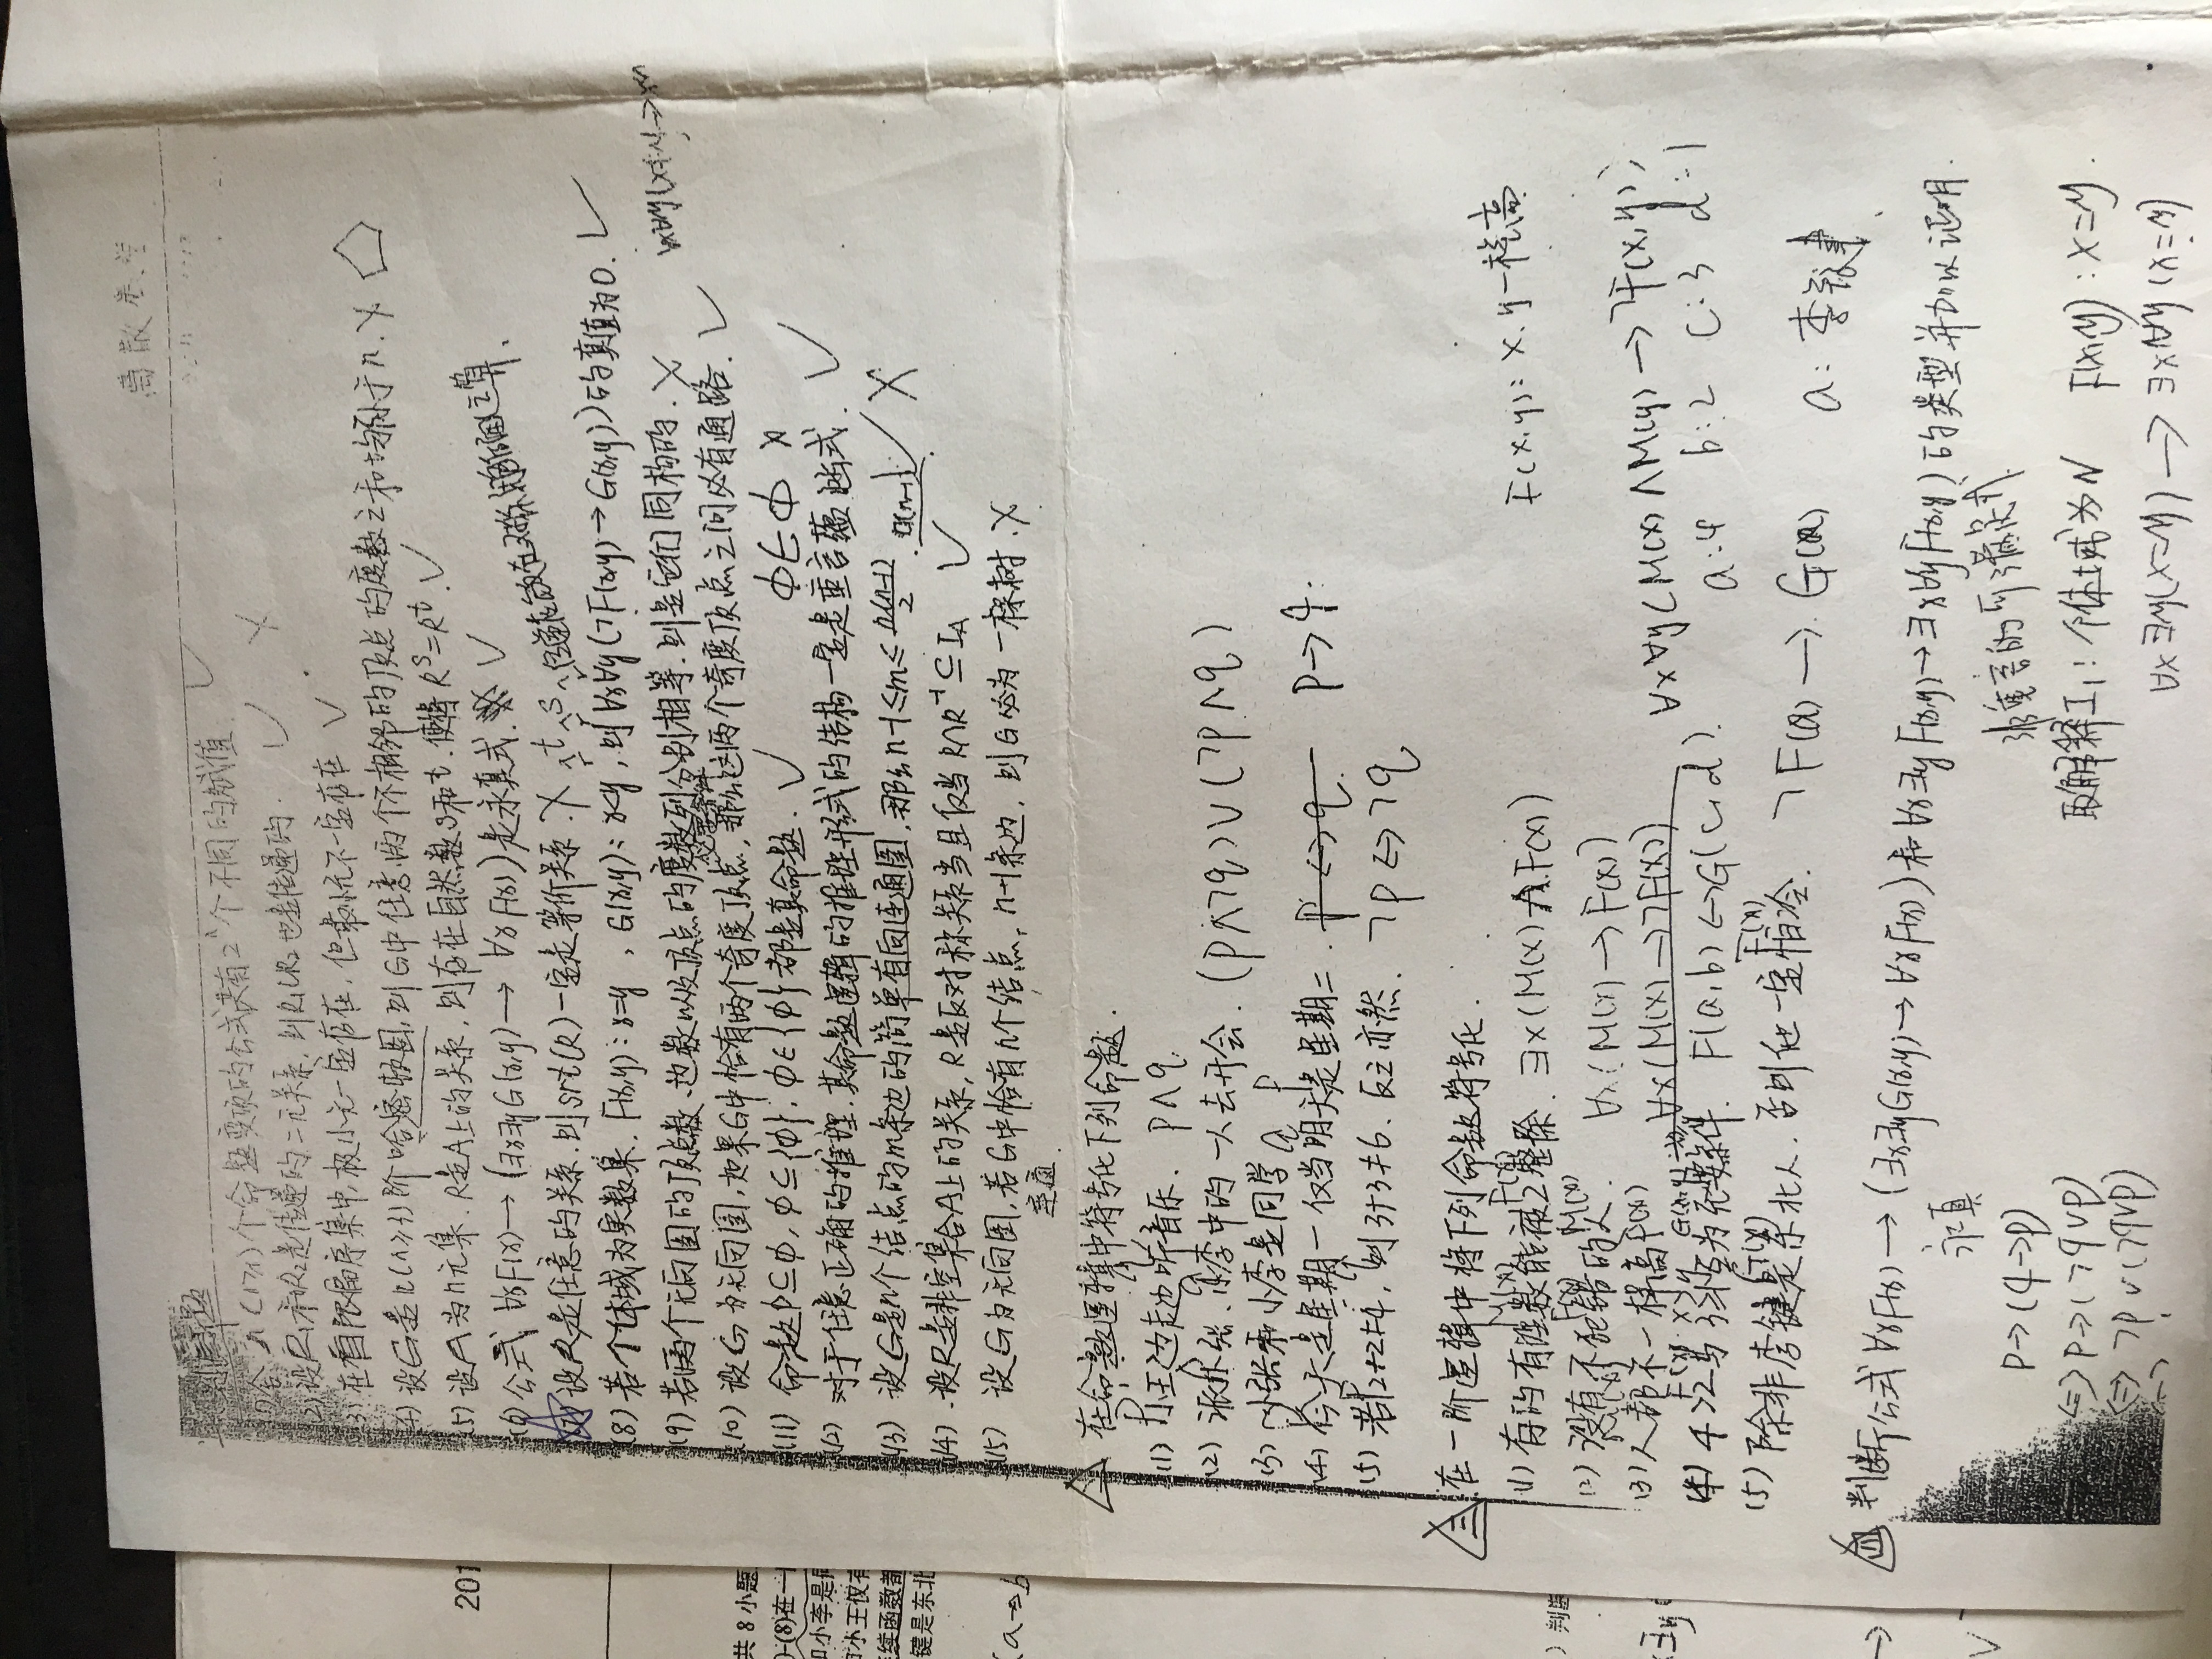 离散数学
判断题
(1) 含n(n≥1)个命题变项的公式共有2ⁿ个不同的赋值 ✓
(2) 设R₁和R₂是传递的二元关系, 则R₁∪R₂也是传递的. ✓ ×
(3) 在有限偏序集中, 极小元一定存在, 但最小元不一定存在 ✓
(4) 设G是n(n≥3)阶哈密顿图, 则G中任意两个不相邻的顶点的度数之和均不小于n. ×
(5) 设A为n元集. R是A上的关系, 则存在自然数s和t. 使得 Rˢ=Rᵗ. ✓
(6) 公式 ∀xF(x)→(∃x∃yG(x,y)→∀xF(x))是永真式. ✓
设R是任意的关系. 则srt(R)一定是等价关系. × t s
(8) 若个体域为实数集. F(x,y): x=y , G(x,y): x<y, 则∀x∀y(¬F(x,y)→G(x,y))的真值为0. ✓
(9) 若两个无向图的顶点数、边数以及顶点的度数列分别相等. 则是它们同构的. ×
必要条件
(10) 设G为无向图, 如果G中恰有两个奇度顶点, 那么这两个奇度顶点之间必有通路. ✓
(11) 命题 ϕ⊆ϕ, ϕ⊆{ϕ}, ϕ∈{ϕ} 都是真命题. ✓ ϕ∈ϕ ×
(12) 对于任意正确的推理. 其命题逻辑的推理形式的结构一定是重言蕴涵式. ✓
(13) 设G是n个结点的m条边的简单有向连通图, 那么 n-1≤m≤n(n-1)/2. n(n-1) ✓ ×
(14) 设R是非空集合A上的关系, R是反对称关系当且仅当 R∩R⁻¹⊆I_A ✓
(15) 设G为无向图, 若G中恰有n个结点, n-1条边, 则G必为一棵树. ×
连通
二 在命题逻辑中符号化下列命题.
(1) 小王边走边听音乐. p∧q
(2) 派小张、小李中的一人去开会. (p∧¬q)∨(¬p∧q)
(3) 小张和小李是同学 p
(4) 今天是星期一仅当明天是星期二. p↔q p→q.
(5) 若2+2≠4, 则3+3≠6. 反之亦然. ¬p↔¬q
三 在一阶逻辑中将下列命题符号化.
M(x) F(x)
(1) 有的有理数能被2整除. ∃x(M(x)∧F(x)) F(x,y): x,y一样高
F(x) M(x)
(2) 没有不犯错的人. ∀x(M(x)→F(x))
(3) 人都不一样高 F(x) ∀x(M(x)→¬F(x)) ∀x∀y(M(x)∧M(y)→¬F(x,y))
F(x,y): x>y
(4) 4>2与3≠1互为充要条件. F(a,b)↔G(c,d). a:4 b:2 c:3 d:1
G(x) F(x)
(5) 除非李键是东北人. 否则他一定怕冷. ¬F(a)→G(a) a: 李键
四 判断公式 ∀xF(x)→(∃x∃yG(x,y)→∀xF(x)) 和 ∀x∃yF(x,y)→∃x∀yF(x,y) 的类型并加以证明.
永真
非重言的可满足式
p→(q→p)
⇔p→(¬q∨p)
⇔¬p∨(¬q∨p)
取解释I₁: 个体域为N F(x,y): x=y.
∀x∃y(x=y)→∃x∀y(x=y)
201
共8小题
(8)在一
小李是同
小王仅有
续函数都
键是东北
(a→b
) 判断
∃y
→
∨